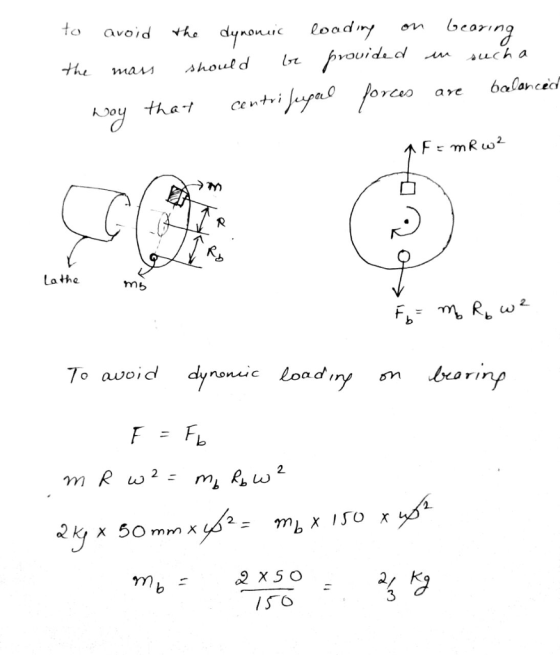 to avoid the dynamic loading on bearing
the mass should be provided in such a
way that centrifugal forces are balanced
F = mRω²
m
R
R_b
Lathe
m_b
F_b = m_b R_b ω²
To avoid dynamic loading on bearing
F = F_b
m R ω² = m_b R_b ω²
2kg × 50mm × ω² = m_b × 150 × ω²
m_b = 2×50/150 = 2/3 kg